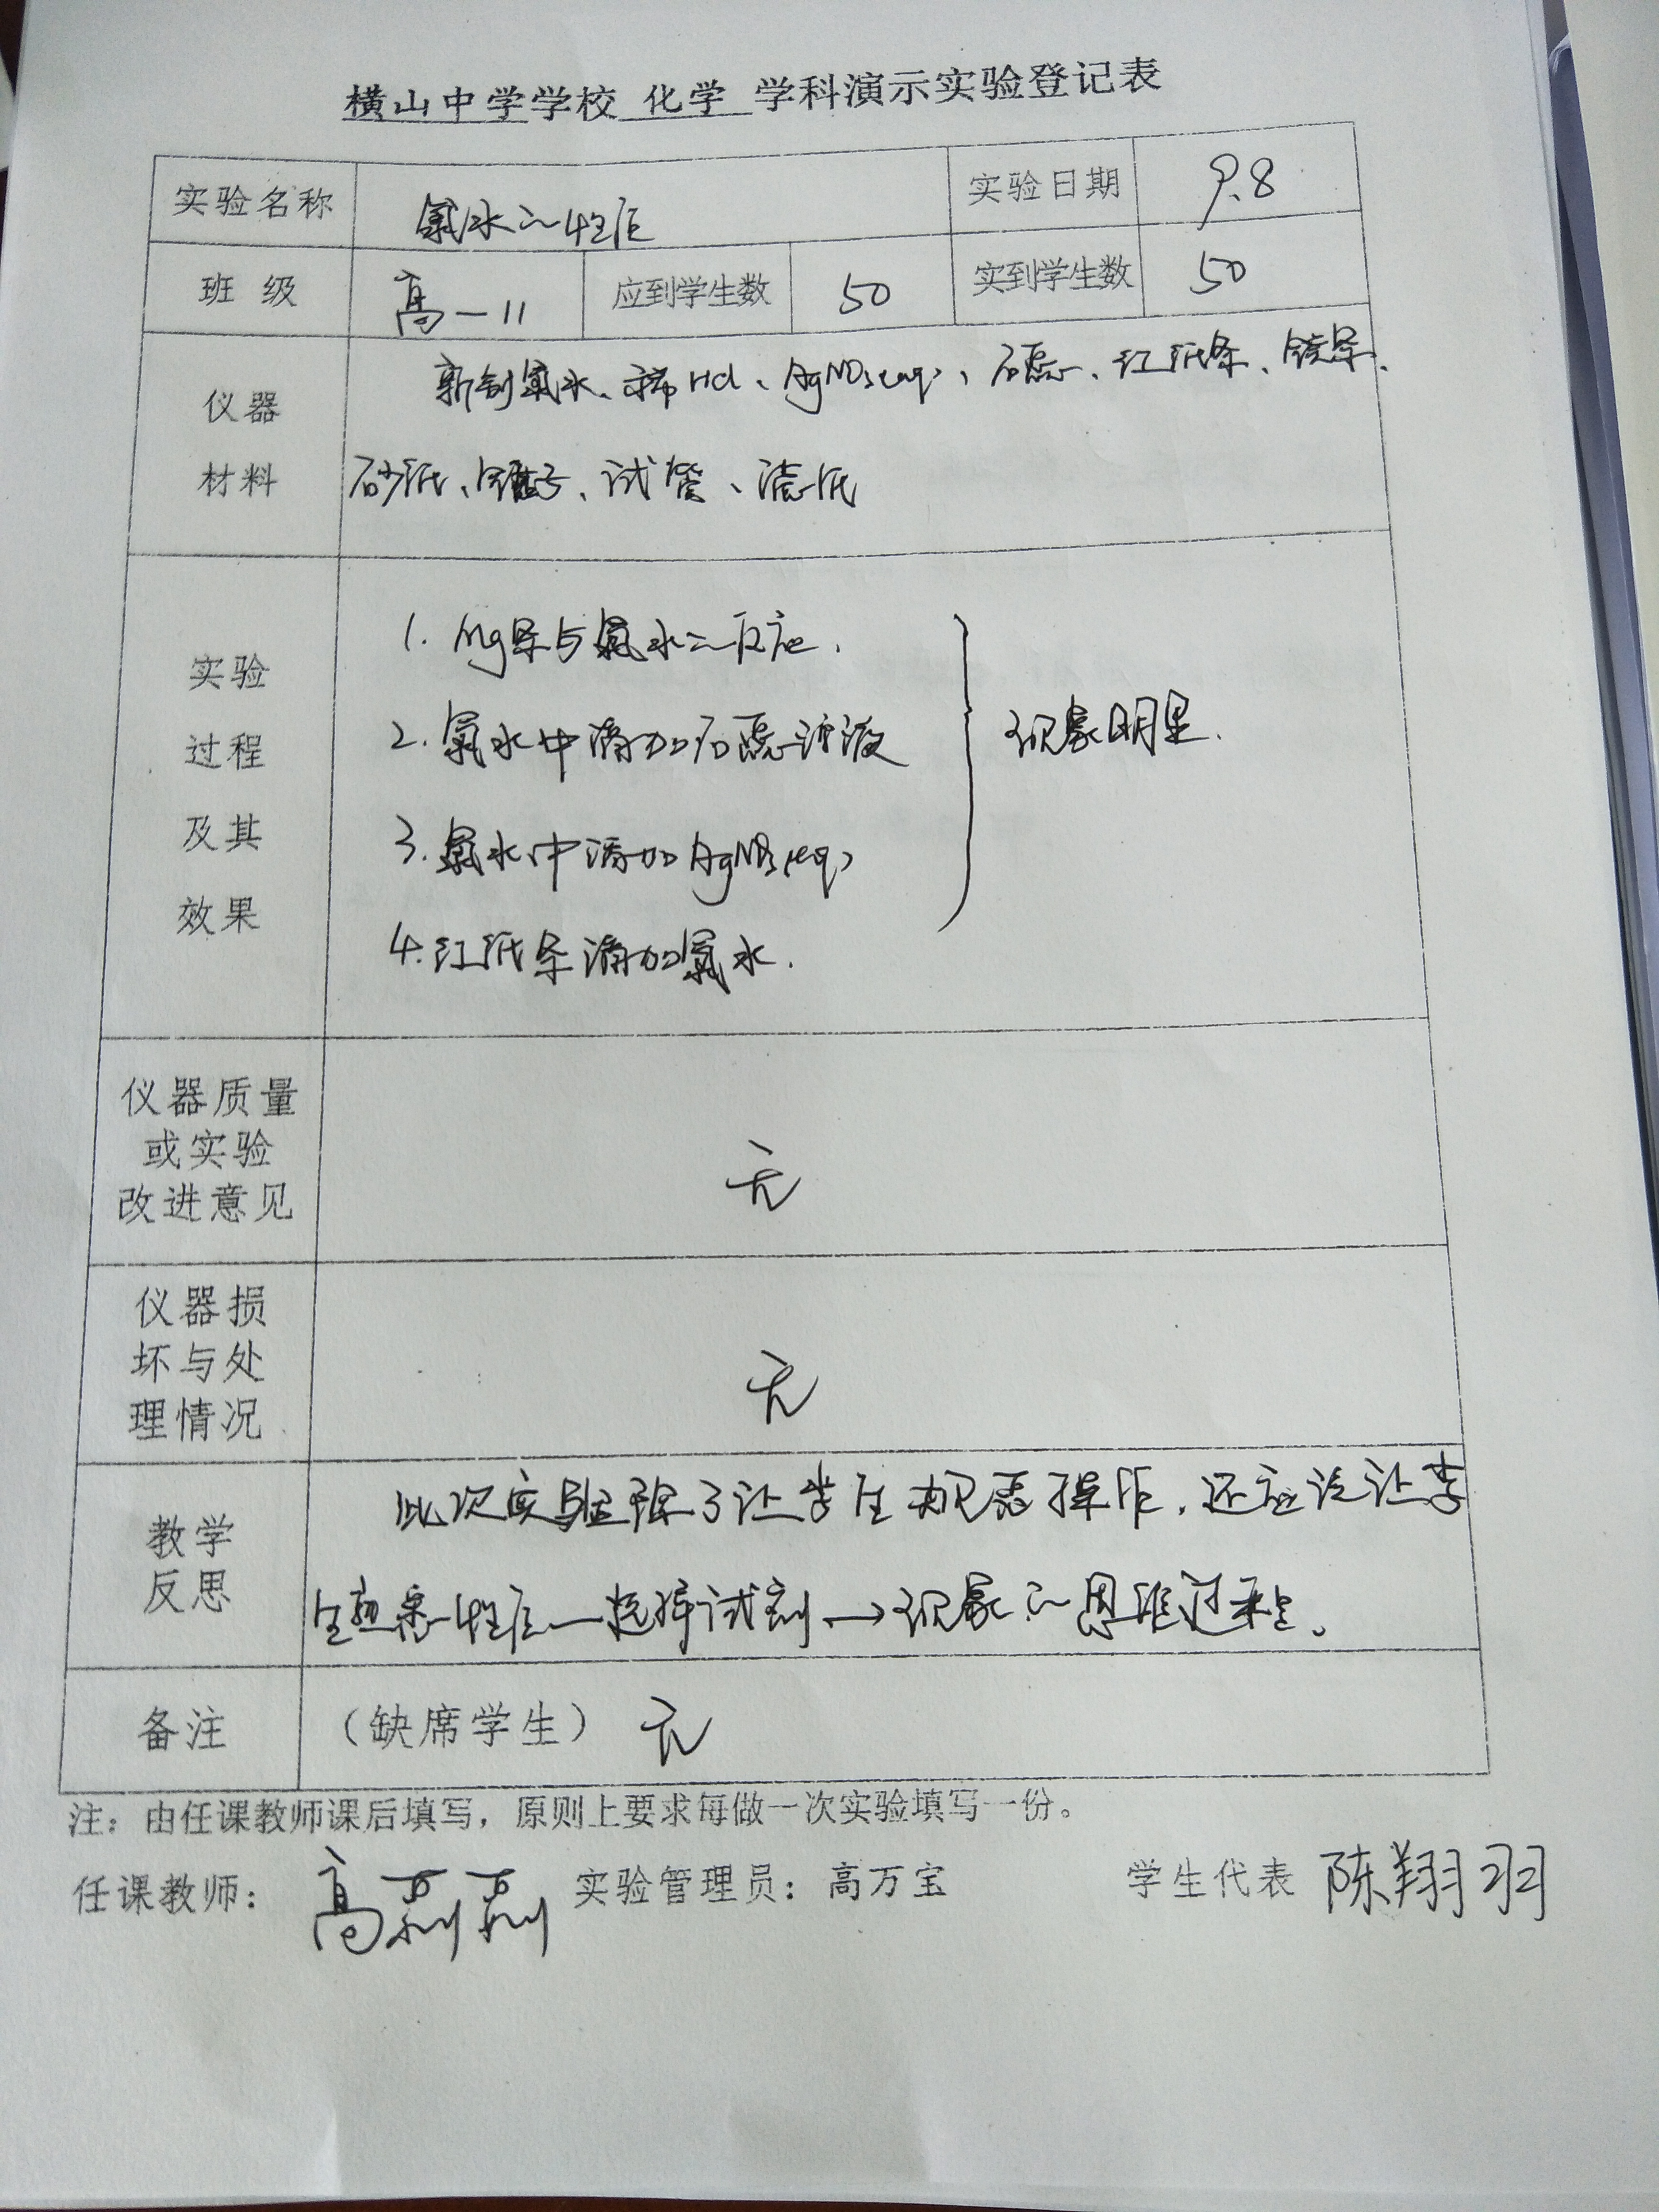 横山中学学校 化学 学科演示实验登记表
实验名称 氯水的性质 实验日期 9.8
班 级 高一11 应到学生数 50 实到学生数 50
仪器 新制氯水、稀HCl、AgNO3(aq)、石蕊、红纸条、镁条、
材料 砂纸、镊子、试管、滤纸
实验
过程
及其
效果
1. Mg条与氯水的反应.
2. 氯水中滴加石蕊溶液
3. 氯水中滴加AgNO3(aq)
4. 红纸条滴加氯水.
现象明显.
仪器质量
或实验
改进意见
无
仪器损
坏与处
理情况
无
教学
反思
此次实验除了让学生规范操作，还应该让学
生熟悉性质—选择试剂→现象的思维过程。
备注 （缺席学生） 无
注：由任课教师课后填写，原则上要求每做一次实验填写一份。
任课教师： 高 实验管理员：高万宝 学生代表 陈翔羽